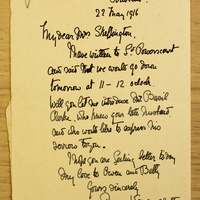 22 May 1916
My dear Mrs Skeffington,
I have written to Ld Powerscourt
and said that we would go down
tomorrow at 11-12 o'clock
Will you let me introduce Sir Basil
Clarke, who knew your late husband,
and who would like to express his
sorrow to you.
I hope you are feeling better today
My love to Owen and Betty
Yours sincerely